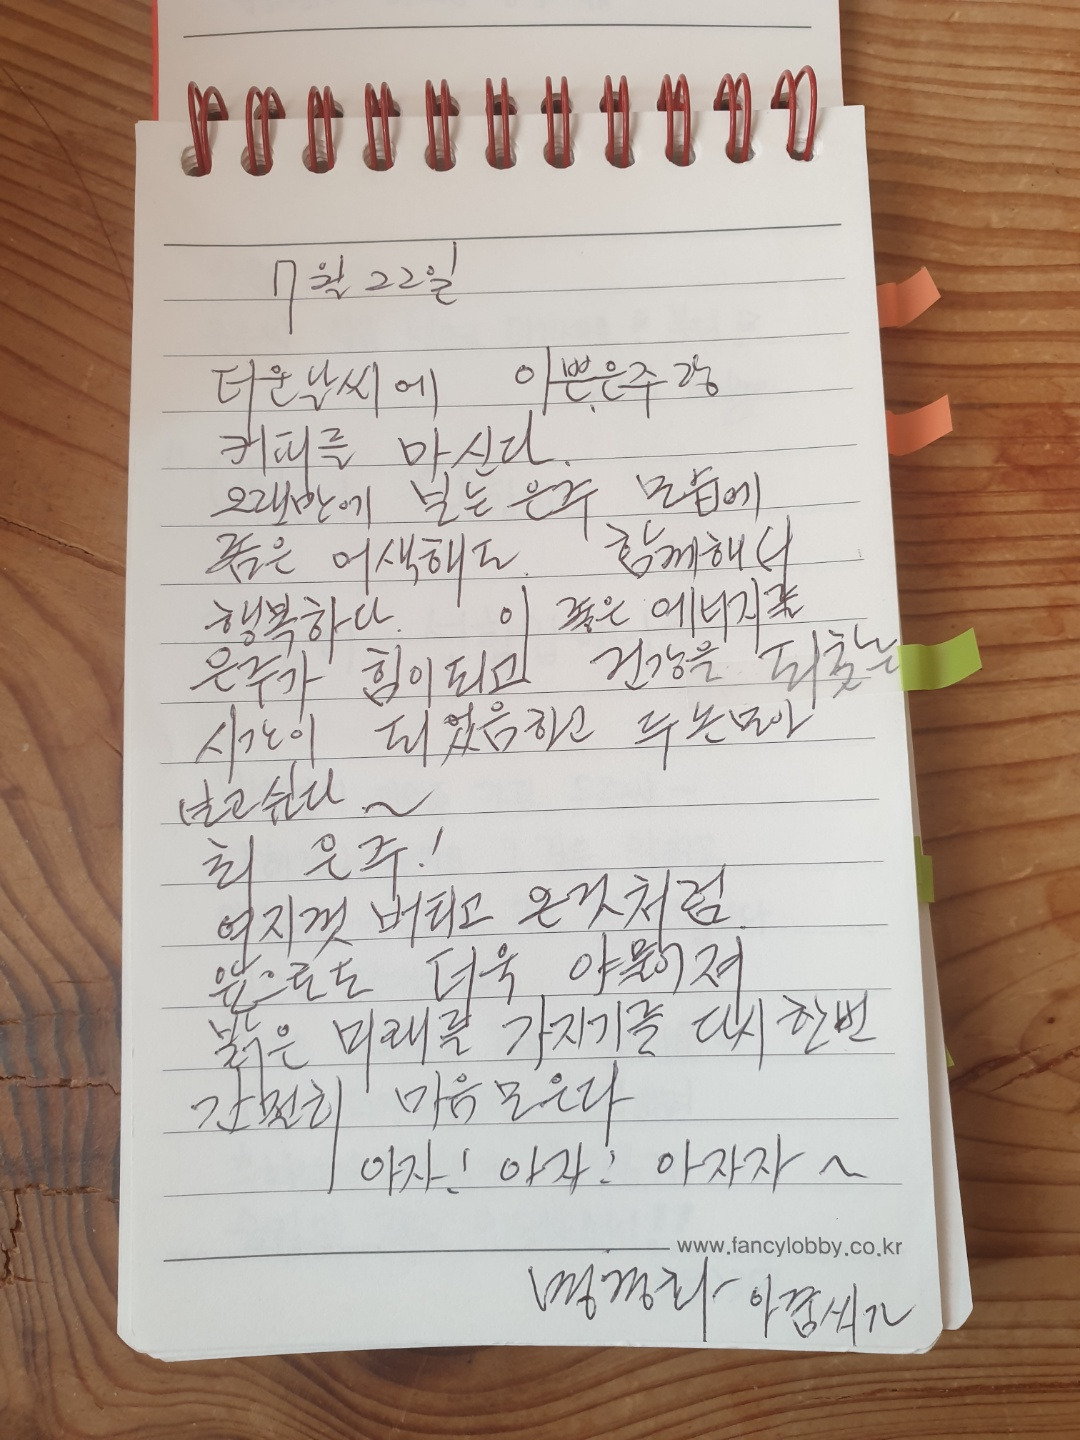 7월 22일
더운날씨에 이쁜은주랑
커피를 마신다.
오래만에 보는 은주 모습에
좀은 어색해도. 함께해서
행복하다. 이 좋은 에너지를
은주가 힘이되고 건강을 되찾는
시간이 되었음하고 두눈모아
보고싶다 ~
최 은주!
여지껏 버티고 온것처럼.
앞으로도 더욱 야물어져
밝은 미래를 가지기를 다시한번
간절히 마음모은다
아자! 아자! 아자자 ~
www.fancylobby.co.kr